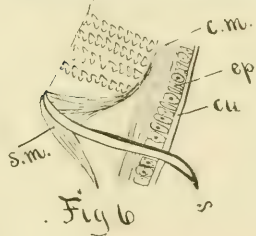 c.m.
ep
cu
s.m.
s
. Fig 6